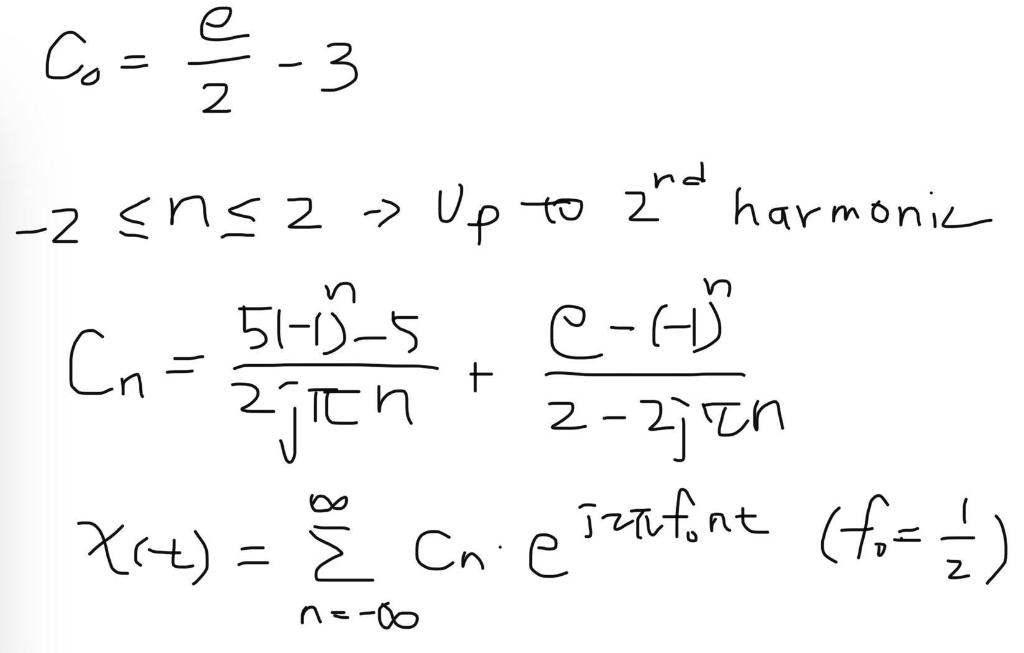 C₀ = e/2 - 3
-2 ≤ n ≤ 2 → Up to 2ⁿᵈ harmonic
Cₙ = (5(-1)ⁿ-5)/(2jπn) + (e-(-1)ⁿ)/(2-2jπn)
x(t) = ∑_{n=-∞}^{∞} Cₙ · e^{j2πf₀nt} (f₀ = 1/2)